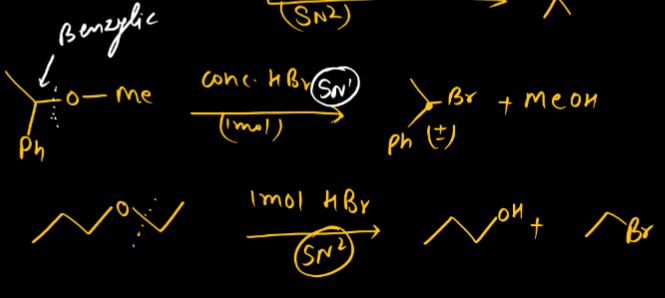 (SN2)
Benzylic
O — Me
Ph
conc. HBr (SN1)
(1mol)
Br + MeOH
Ph (±)
O
1mol HBr
(SN2)
OH +
Br